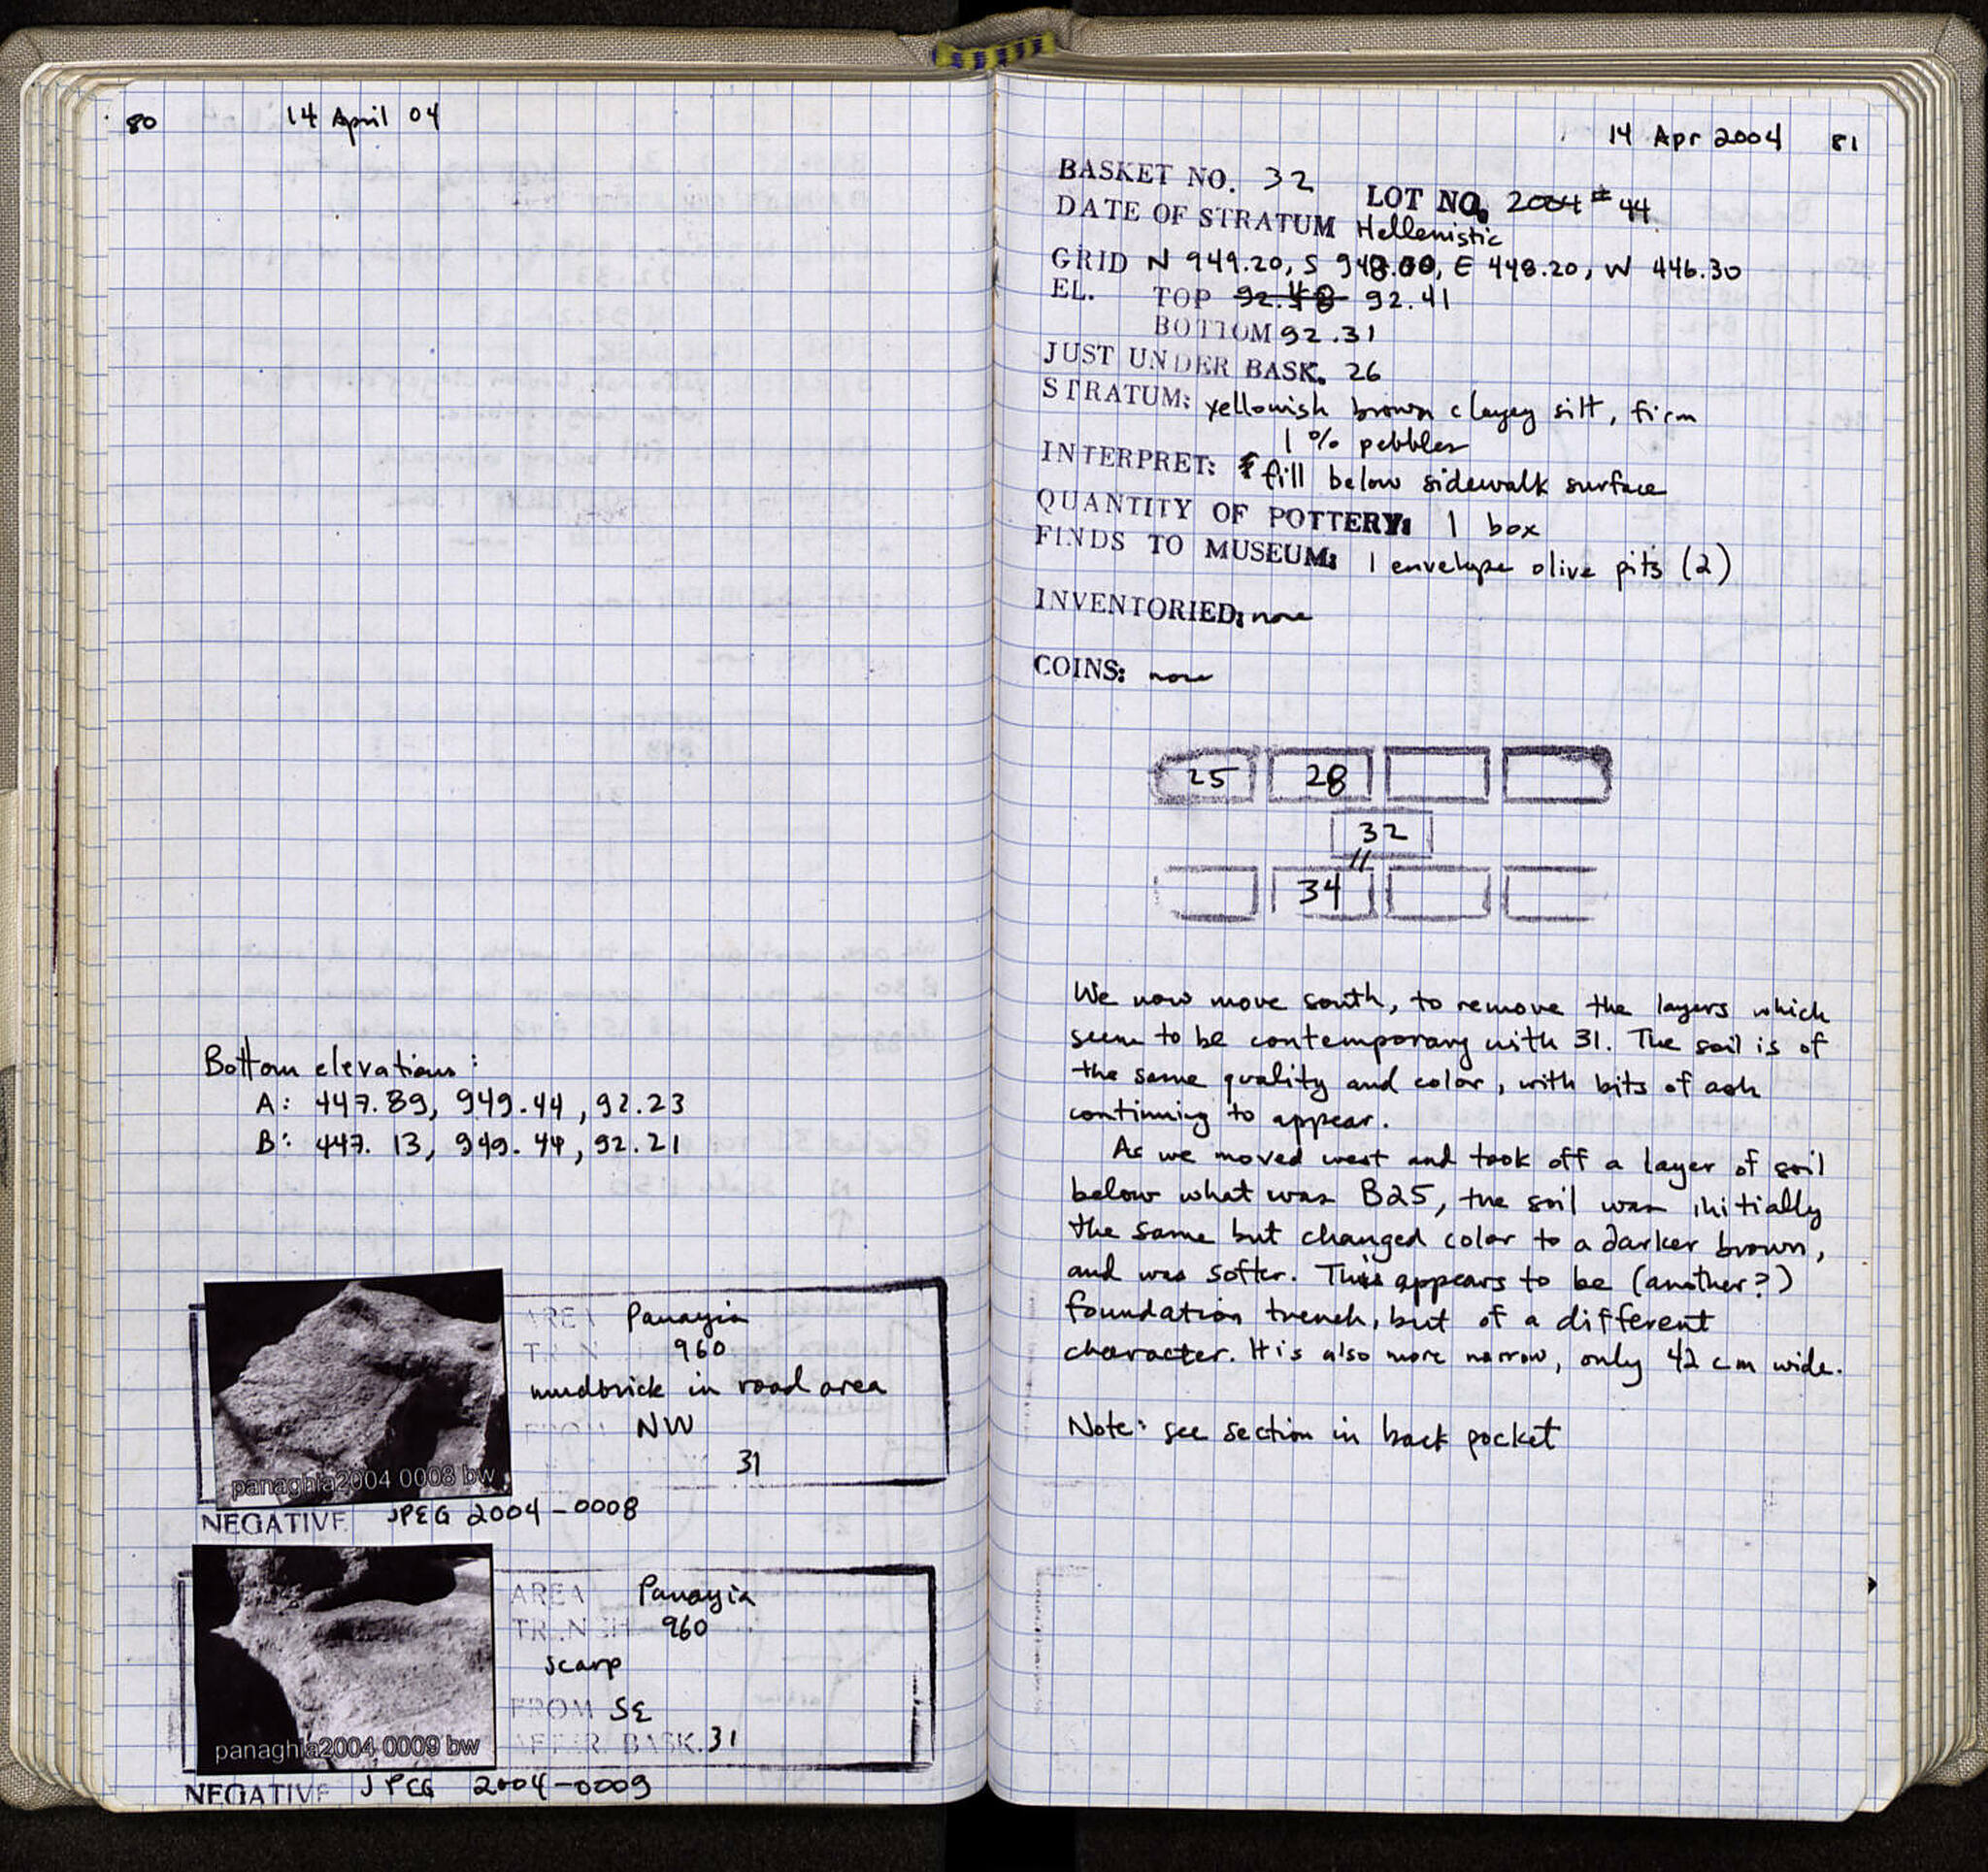 80
14 April 04
Bottom elevations:
A: 447.89, 949.44, 92.23
B: 447.13, 949.44, 92.21
AREA Panayia
960
mudbrick in road area
FROM NW
31
panaghia2004 0008 bw
NEGATIVE JPEG 2004-0008
AREA Panayia
TRENCH 960
scarp
FROM SE
AFTER BASK. 31
panaghia2004 0009 bw
NEGATIVE JPEG 2004-0009
14 Apr 2004 81
BASKET NO. 32 LOT NO. 2004 # 44
DATE OF STRATUM Hellenistic
GRID N 949.20, S 948.00, E 448.20, W 446.30
EL. TOP 92.48 92.41
BOTTOM 92.31
JUST UNDER BASK. 26
STRATUM: yellowish brown clayey silt, firm
1 % pebbles
INTERPRET: fill below sidewalk surface
QUANTITY OF POTTERY: 1 box
FINDS TO MUSEUM: 1 envelope olive pits (2)
INVENTORIED: none
COINS: none
25 28
32
34
We now move south, to remove the layers which
seem to be contemporary with 31. The soil is of
the same quality and color, with bits of ash
continuing to appear.
As we moved west and took off a layer of soil
below what was B25, the soil was initially
the same but changed color to a darker brown,
and was softer. This appears to be (another?)
foundation trench, but of a different
character. It is also more narrow, only 42 cm wide.
Note: see section in back pocket